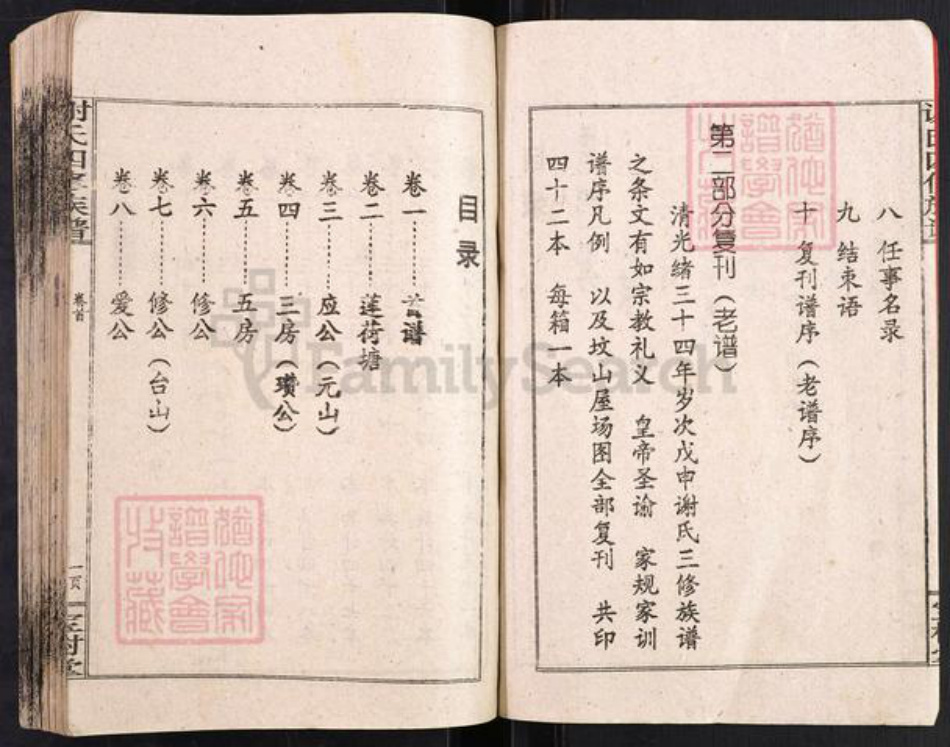 八 任事名录
九 结束语
十 复刊谱序（老谱序）
第二部分复刊（老谱）
清光绪三十四年岁次戊申谢氏三修族谱
之条文有如宗教礼义 皇帝圣谕 家规家训
谱序凡例 以及坟山屋场图全部复刊 共印
四十二本 每箱一本
目录
卷一………首谱
卷二………莲荷塘
卷三………应公（元山）
卷四………三房（瓒公）
卷五………五房
卷六………修公
卷七………修公（台山）
卷八………爱公
卷首
一页
FamilySearch